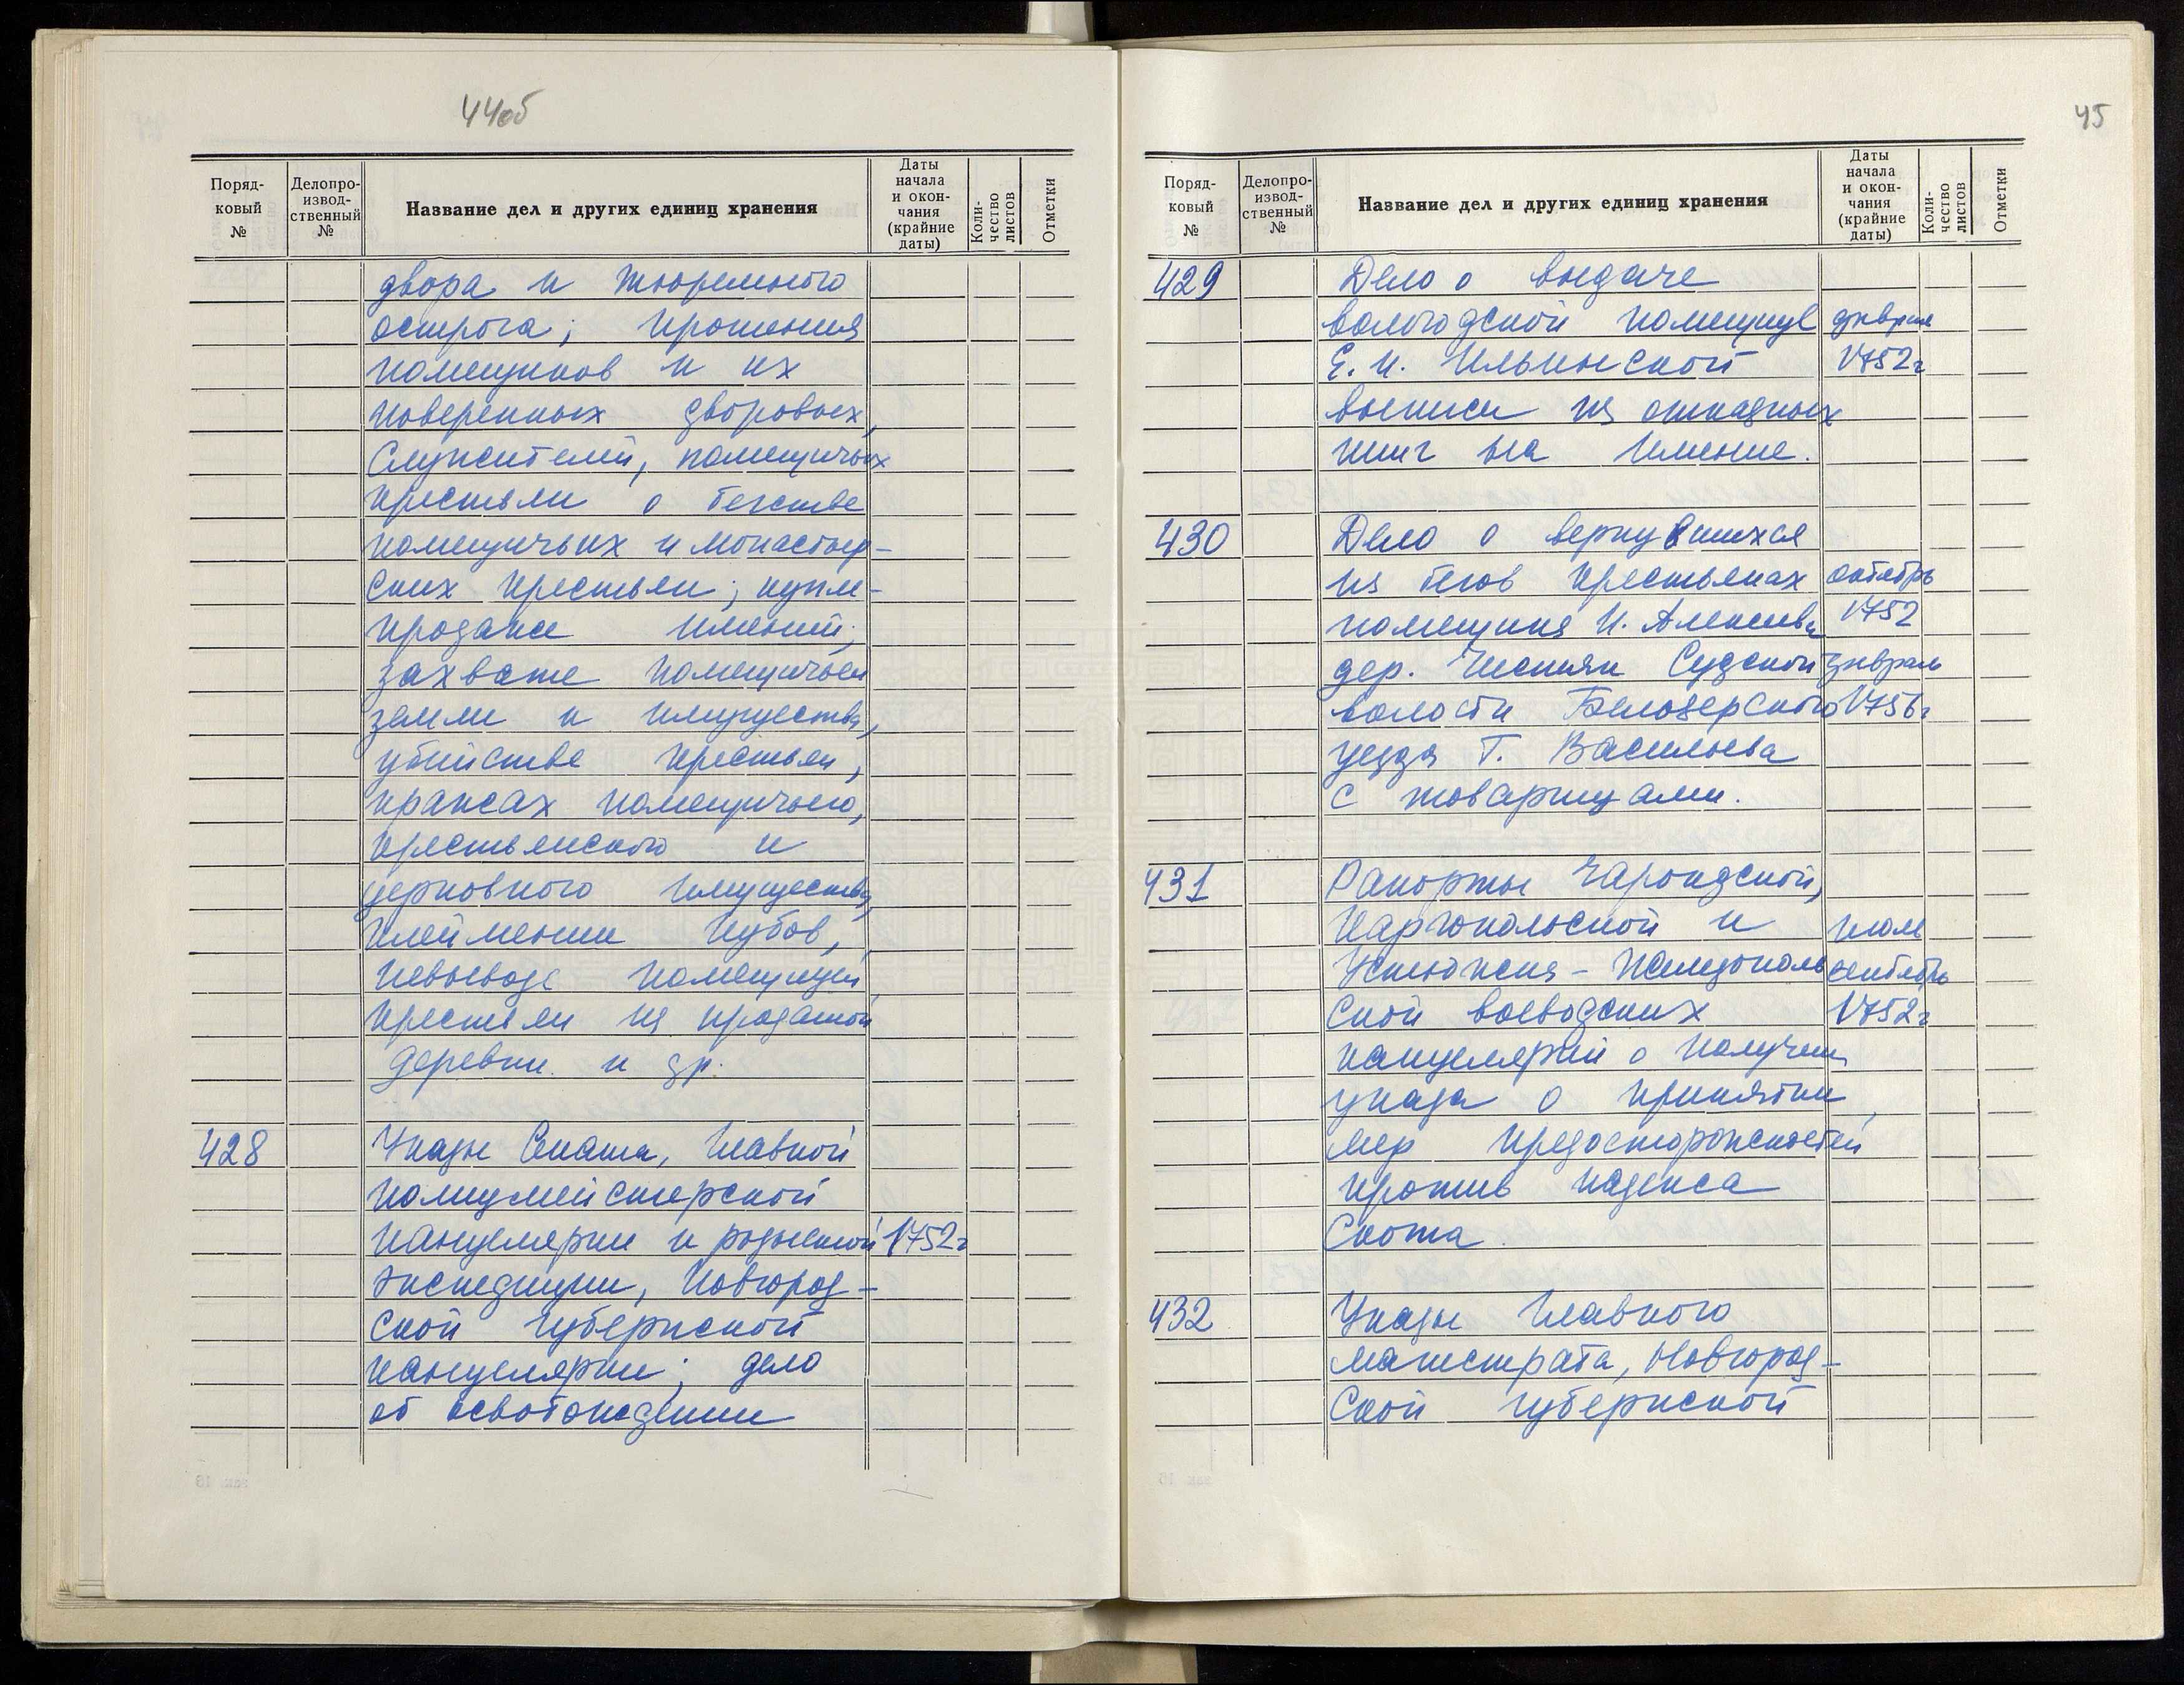 44об
Поряд-
ковый
№
Делопро-
извод-
ственный
№
Название дел и других единиц хранения
Даты
начала
и окон-
чания
(крайние
даты)
Коли-
чество
листов
Отметки
двора и тюремного
острога; прошения
помещиков и их
поверенных дворовых,
служителей, помещичьих
крестьян о бегстве
помещичьих и монастыр-
ских крестьян; купле-
продаже имений,
захвате помещичьей
земли и имущества,
убийстве крестьян,
кражах помещичьего,
крестьянского и
церковного имущества,
клеймении кубов,
невыводе помещицей
крестьян из проданой
деревни и др.
428
Указы Сената, Главной
полицмейстерской
канцелярии и розыскной
1752г
экспедиции, Новгород-
ской губернской
канцелярии; дело
об освобождении
45
Поряд-
ковый
№
Делопро-
извод-
ственный
№
Название дел и других единиц хранения
Даты
начала
и окон-
чания
(крайние
даты)
Коли-
чество
листов
Отметки
429
Дело о выдаче
вологодской помещице
Е. И. Ильинской
1752г
выписи из отказных
книг на имение.
430
Дело о вернувшихся
из бегов крестьянах
октябрь
помещика И. Алексеева
1752
дер. Судской
волости Белозерского
1756г
уезда Г. Васильева
с товарищами.
431
Рапорты Чарондской,
Каргопольской и
июль
Устюжена-Железополь
сентябрь
ской воеводских
1752г
канцелярий о получен
указа о принятии
мер предосторожностей
против падежа
скота.
432
Указы Главного
магистрата, Новгород-
ской губернской